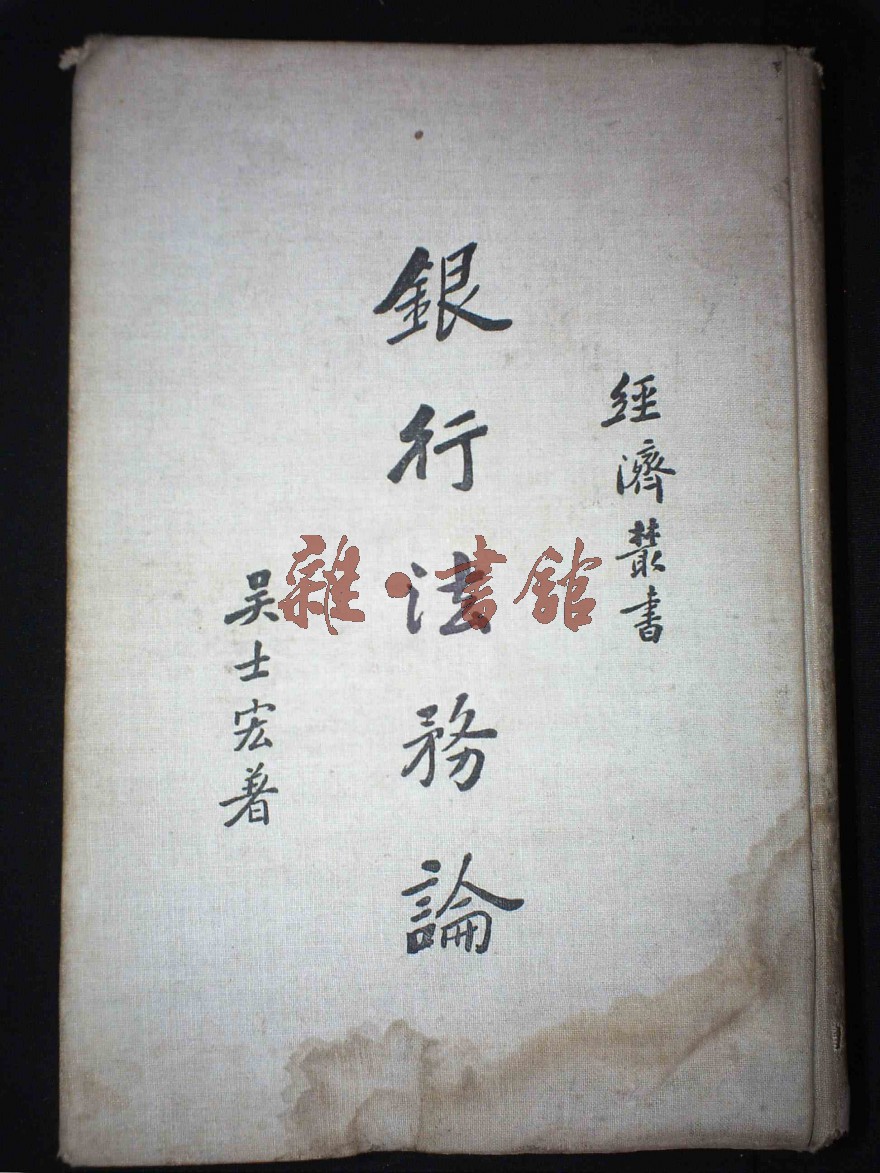 經濟叢書
銀行法務論
吴士宏著
雜·書館